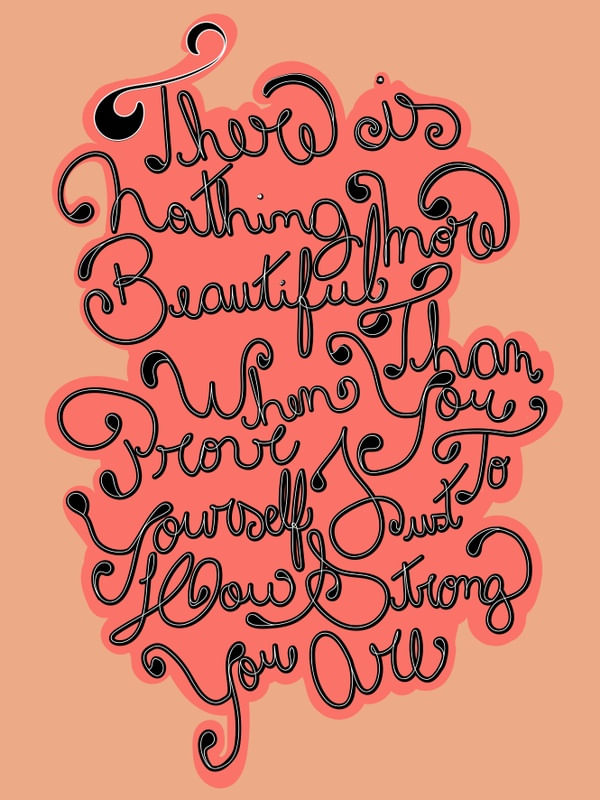 There is
Nothing more
Beautiful Than
When You
Prove To
Yourself Just
How Strong
You Are